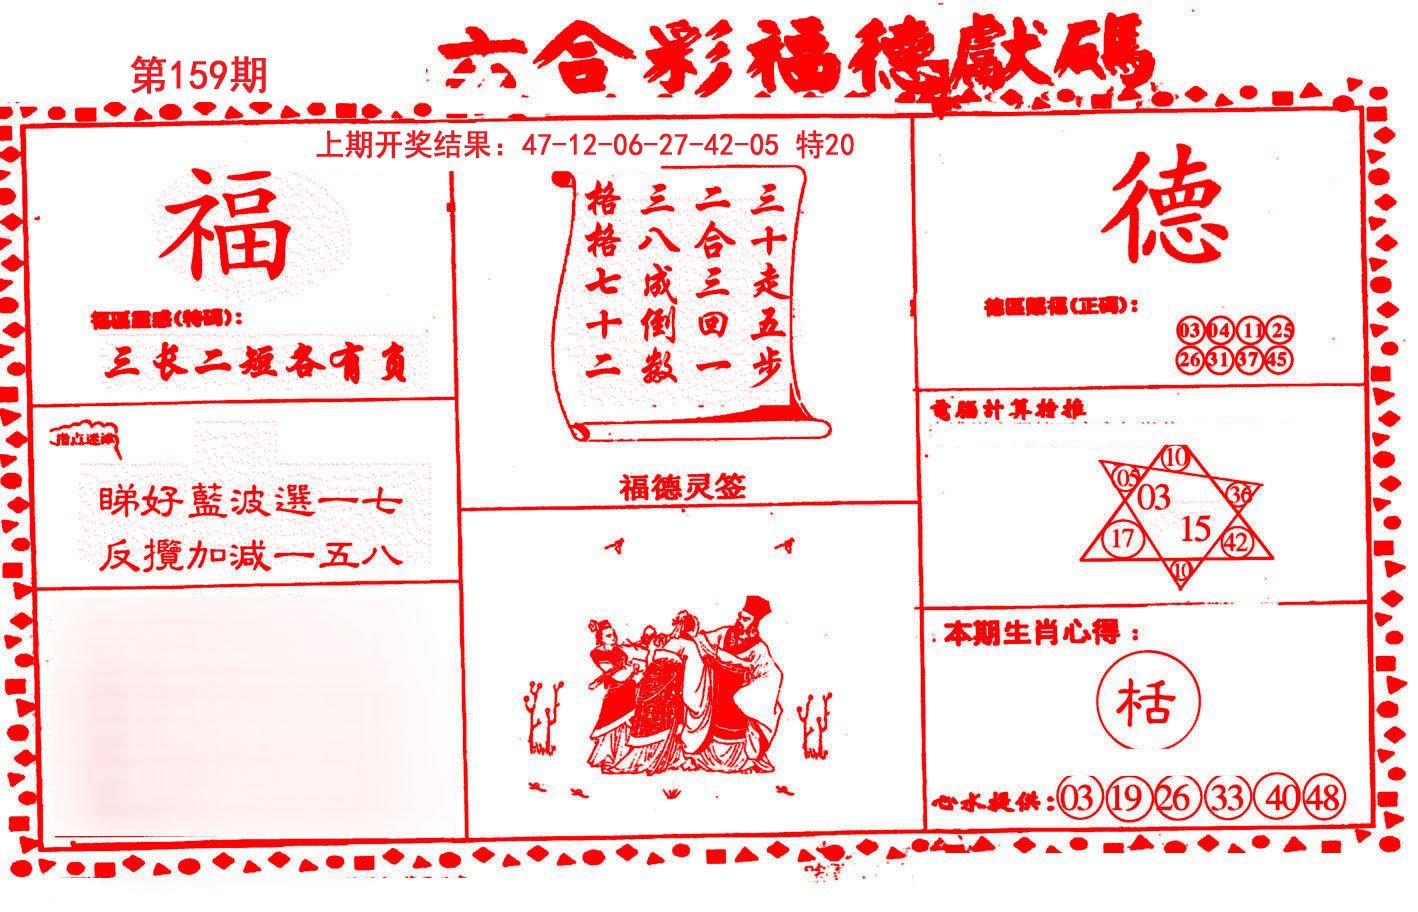 第159期
六合彩福德獻碼
上期开奖结果：47-12-06-27-42-05 特20
福
福區靈感(特碼)：
三长二短各有负
指点迷津
睇好藍波選一七
反攬加减一五八
三十走五步
二合三回一
三八成倒数
格格七十二
福德灵签
德
德區賜福(正碼)：
03 04 11 25
26 31 37 45
電腦計算拾推
10
05 03 36
17 15 42
10
本期生肖心得：
栝
心水提供：03 19 26 33 40 48